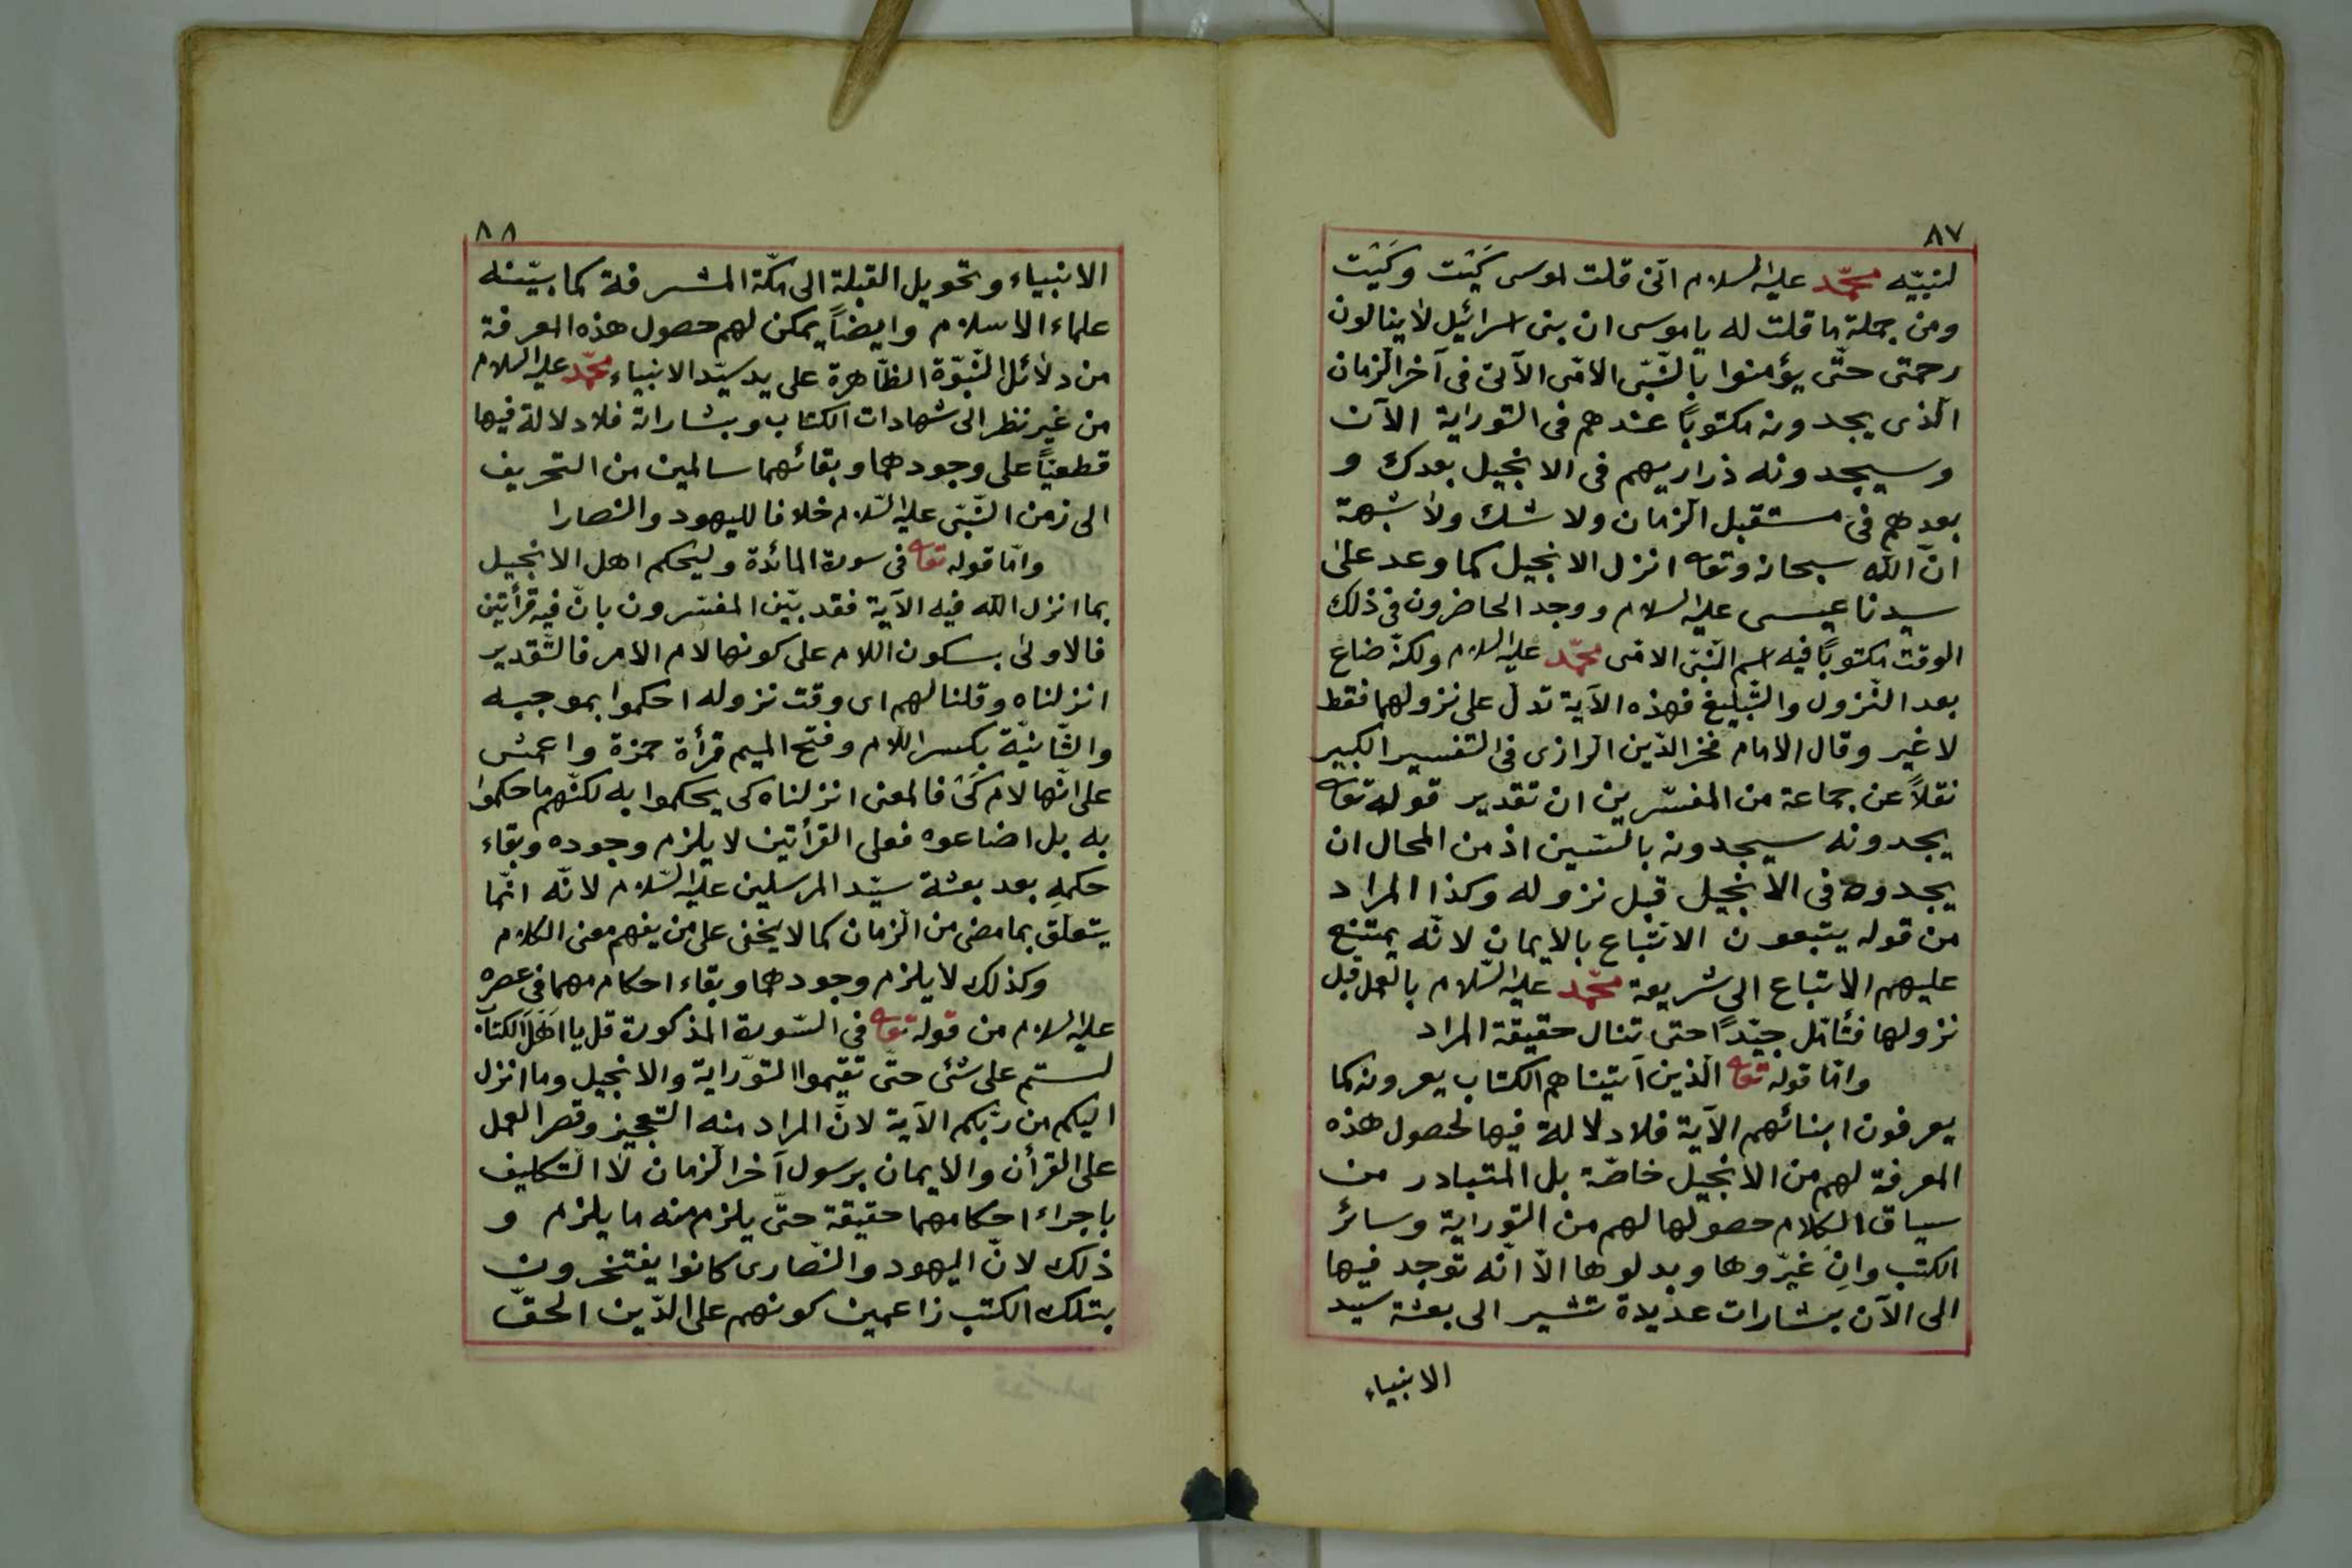 ٨٧
لنبيّه محمّد عليه السلام انّى قلت لموسى كَيْت وكَيْت
ومن جملة ما قلت له يا موسى ان بنى اسرائيل لا ينالون
رحمتى حتّى يؤمنوا بالنّبّى الامّى الآتى فى آخر الزمان
الّذى يجدونه مكتوباً عندهم فى التوراية الآن
وسيجدونه ذراريهم فى الانجيل بعدك و
بعدهم فى مستقبل الزمان ولا شك ولا شبهة
انّ الله سبحانه وتعا انزل الانجيل كما وعد على
سيدنا عيسى عليه السلام ووجد الحاضرون فى ذلك
الوقت مكتوباً فيه اسم النّبّى الامّى محمّد عليه السلام ولكنّه ضاع
بعد النّزول والتّبليغ فهذه الآية تدلّ على نزولهما فقط
لا غير وقال الامام فخر الدّين الرازى فى التفسير الكبير
نقلاً عن جماعة من المفسّرين ان تقدير قوله تعا
يجدونه سيجدونه بالسّين اذ من المحال ان
يجدوه فى الانجيل قبل نزوله وكذا المراد
من قوله يتبعون الاتّباع بالايمان لانّه يمتنع
عليهم الاتباع الى شريعة محمّد عليه السّلام بالعمل قبل
نزولها فتأمّل جيّداً حتى تنال حقيقة المراد
وامّا قوله تعا الّذين آتيناهم الكتاب يعرونه كما
يعرفون ابنائهم الآية فلا دلالة فيها لحصول هذه
المعرفة لهم من الانجيل خاصّة بل المتبادر من
سياق الكلام حصولها لهم من التوراية وسائر
الكتب وان غيّروها وبدلوها الّا انّه توجد فيها
الى الآن بشارات عديدة تشير الى بعثة سيد
الانبياء
٨٨
الانبياء وتحويل القبلة الى مكّة المشرفة كما بيّنه
علماء الاسلام وايضاً يمكن لهم حصول هذه المعرفة
من دلائل النّبوّة الظّاهرة على يد سيّد الانبياء محمّد عليه السلام
من غير نظر الى شهادات الكتاب وبشاراته فلا دلالة فيها
قطعيّاً على وجودهما وبقائهما سالمين من التحريف
الى زمن النّبّى عليه السّلام خلافا لليهود والنصارا
وامّا قوله تعا فى سورة المائدة وليحكم اهل الانجيل
بما انزل الله فيه الآية فقد بيّن المفسّرون بانّ فيه قرأتين
فالاولى بسكون اللام على كونها لام الامر فالتّقدير
انزلناه وقلنا لهم اى وقت نزوله احكموا بموجبه
والثّانيّة بكسر اللّام وفتح الميم قرأة حمزة واعمش
على انّها لام كَىْ فالمعنى انزلناه كى يحكموا به لكنّهم ما حكموا
به بل اضاعوه فعلى القرأتين لا يلزم وجوده وبقاء
حكمه بعد بعثة سيّد المرسلين عليه السّلام لانّه انّما
يتعلّق بما مضى من الزمان كما لا يخفى على من يفهم معنى الكلام
وكذلك لا يلزم وجودهما وبقاء احكامهما فى عصره
عليه السلام من قوله تعا فى السّورة المذكورة قل يا اهل الكتاب
لستم على شئ حتّى تقيموا التوراية والانجيل وما انزل
اليكم من ربّكم الآية لانّ المراد منه التعجيز وقصر العمل
على القرأن والايمان برسول آخر الزمان لا التكليف
باجراء احكامهما حقيقة حتّى يلزم منه ما يلزم و
ذلك لانّ اليهود والنّصارى كانوا يفتخرون
بتلك الكتب زاعمين كونهم على الدّين الحقّ